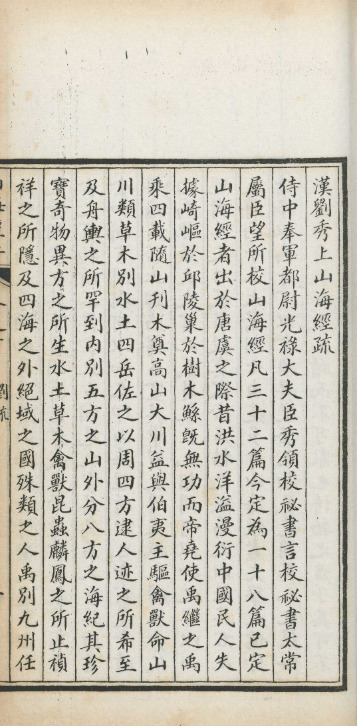 漢劉秀上山海經疏
侍中奉軍都尉光祿大夫臣秀領校祕書言校祕書太常
屬臣望所校山海經凡三十二篇今定為一十八篇已定
山海經者出於唐虞之際昔洪水洋溢漫衍中國民人失
據崎嶇於邱陵巢於樹木鯀既無功而帝堯使禹繼之禹
乘四載隨山刊木奠高山大川益與伯夷主驅禽獸命山
川類草木別水土四岳佐之以周四方逮人迹之所希至
及舟輿之所罕到內別五方之山外分八方之海紀其珍
寶奇物異方之所生水土草木禽獸昆蟲麟鳳之所止禎
祥之所隱及四海之外絕域之國殊類之人禹別九州任
劉疏